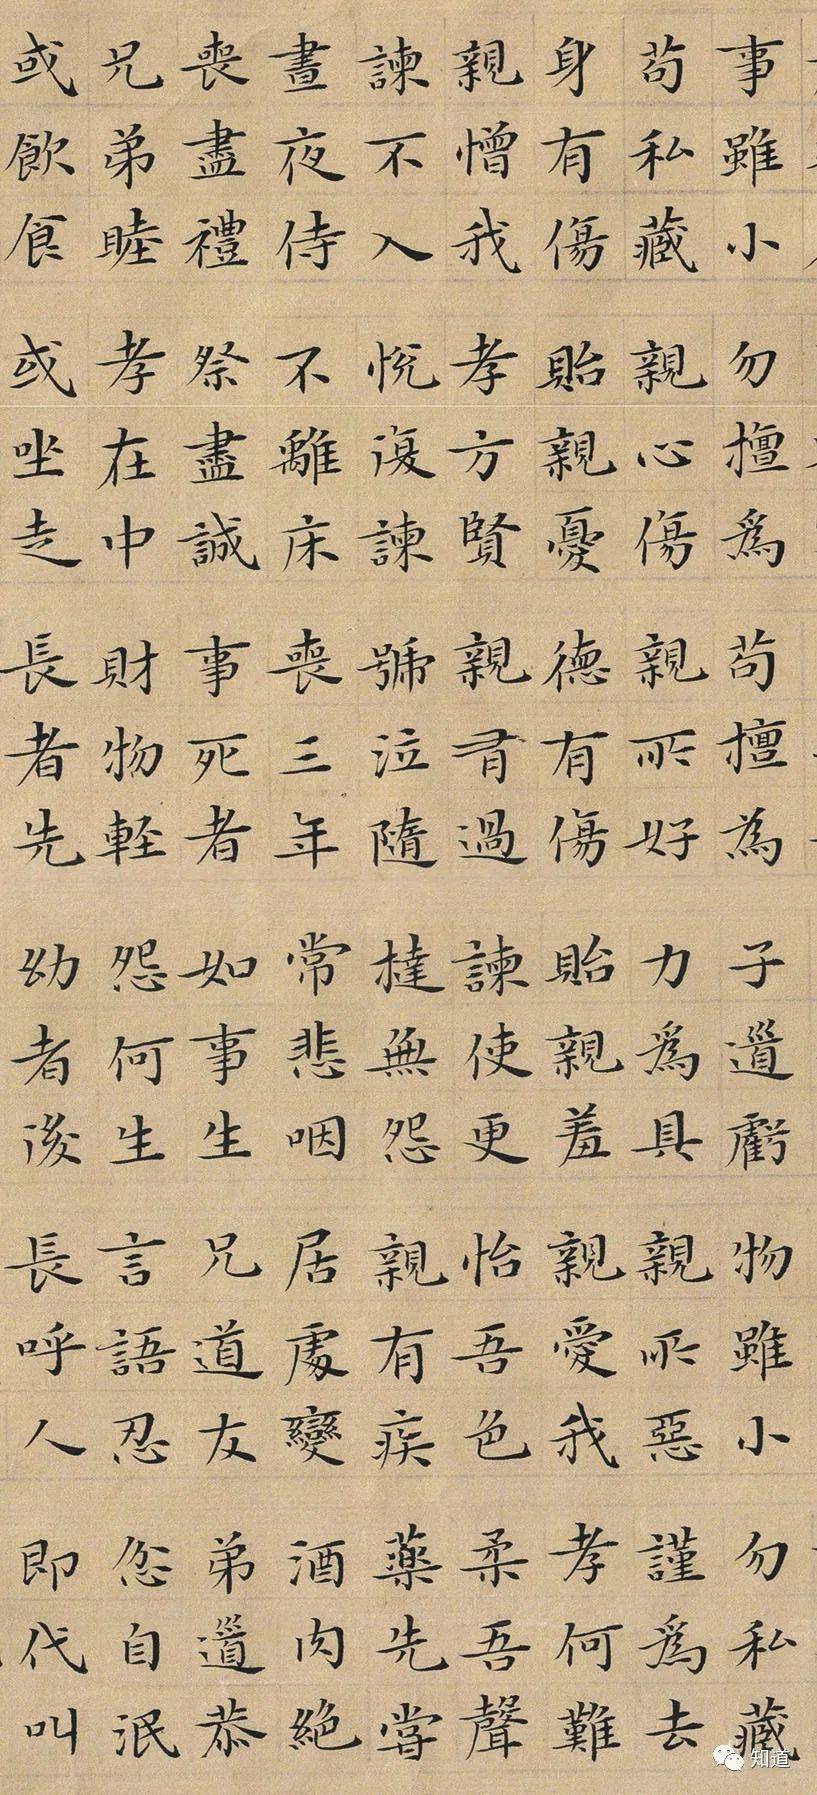 事雖小勿擅爲苟擅為子道虧物雖小勿私藏
苟私藏親心傷親所好力爲具親所惡謹為去
身有傷貽親憂德有傷貽親羞親愛我孝何難
親憎我孝方賢親有過諫使更怡吾色柔吾聲
諫不入悅復諫號泣隨撻無怨親有疾藥先嘗
晝夜侍不離床喪三年常悲咽居處變酒肉絕
喪盡禮祭盡誠事死者如事生兄道友弟道恭
兄弟睦孝在中財物軽怨何生言語忍忿自泯
或飲食或坐走長者先幼者後長呼人即代叫
知道